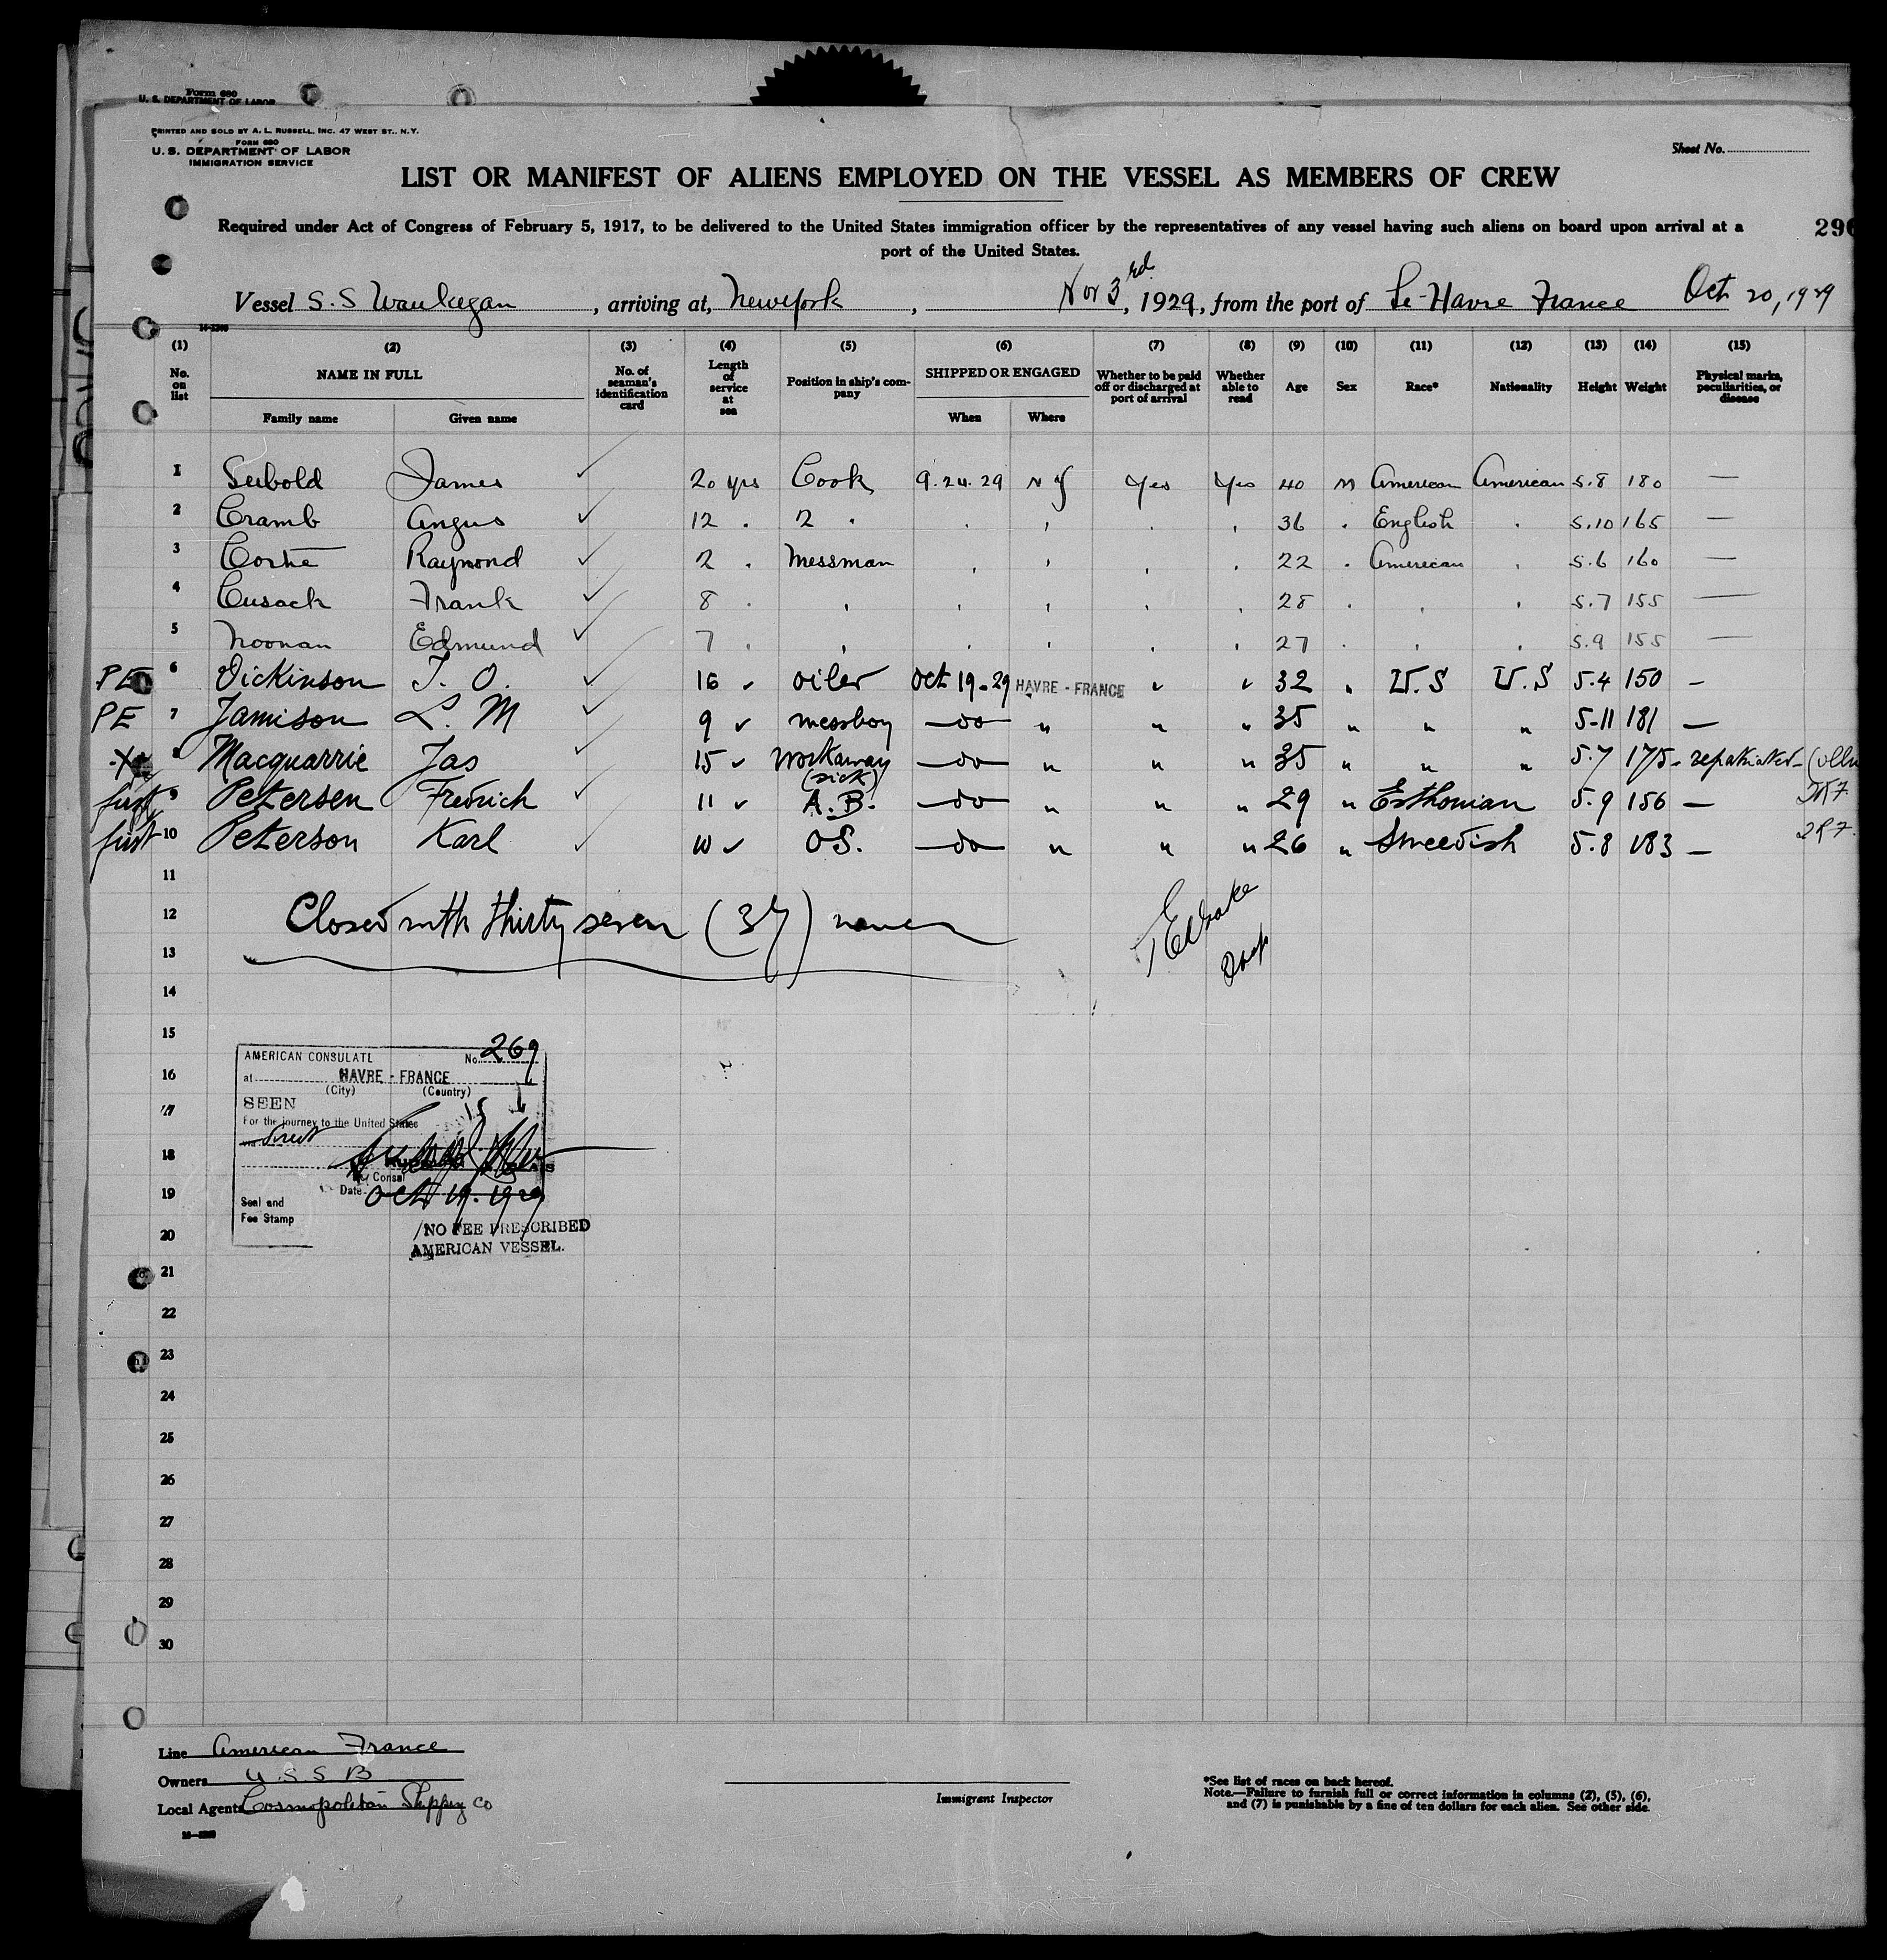 Form 680
U. S. DEPARTMENT OF LABOR
PRINTED AND SOLD BY A. L. RUSSELL, INC. 47 WEST ST., N.Y.
FORM 680
U. S. DEPARTMENT OF LABOR
IMMIGRATION SERVICE
Sheet No.
LIST OR MANIFEST OF ALIENS EMPLOYED ON THE VESSEL AS MEMBERS OF CREW
Required under Act of Congress of February 5, 1917, to be delivered to the United States immigration officer by the representatives of any vessel having such aliens on board upon arrival at a
port of the United States.
296
Vessel S. S Waukegan, arriving at, New York, Nov 3rd, 1929, from the port of Le-Havre France Oct 20, 1929
(1) (2) (3) (4) (5) (6) (7) (8) (9) (10) (11) (12) (13) (14) (15)
No. on list NAME IN FULL Family name Given name No. of seaman's identification card Length of service at sea Position in ship's company SHIPPED OR ENGAGED When Where Whether to be paid off or discharged at port of arrival Whether able to read Age Sex Race* Nationality Height Weight Physical marks, peculiarities, or disease
1 Seibold James ✓ 20 yrs Cook 9.24.29 NY Yes Yes 40 M American American 5.8 180 —
2 Cramb Angus ✓ 12 . 2 . . , . , 36 . English . 5.10 165 —
3 Raymond ✓ 2 . Messman , , , . 22 . American , 5.6 160 —
4 Cusack Frank ✓ 8 . , , , , . 28 . . . 5.7 155 —
5 Noonan Edmund ✓ 7 . , . , . , 27 . . . 5.9 155 —
PE 6 Dickinson T. O. ✓ 16 ✓ Oiler Oct 19-29 HAVRE - FRANCE " " 32 " U.S U.S 5.4 150 —
PE 7 Jamison L. M ✓ 9 ✓ messboy —do— " " " 35 " " " 5-11 181 —
8 Macquarrie Jas ✓ 15 ✓ workaway (sick) —do— " " " 35 " " " 5.7 175 - repatriated -
first 9 Petersen Fredrich ✓ 11 ✓ A.B. —do— " " " 29 " Esthonian 5.9 156 —
first 10 Peterson Karl ✓ 10 ✓ O.S. —do— " " " 26 " Sweedish 5.8 183 —
11
12 Closed with thirty seven (37) names
13
14
15
16
17
18
19
20
21
22
23
24
25
26
27
28
29
30
AMERICAN CONSULATE No. 269
at HAVRE - FRANCE
(City) (Country)
SEEN
For the journey to the United States
via direct
Consul
Date Oct 19. 1929
Seal and
Fee Stamp
NO FEE PRESCRIBED
AMERICAN VESSEL.
Line American France
Owners U S S B
Local Agents Cosmopolitan Shipping Co
Immigrant Inspector
*See list of races on back hereof.
Note.—Failure to furnish full or correct information in columns (2), (5), (6),
and (7) is punishable by a fine of ten dollars for each alien. See other side.